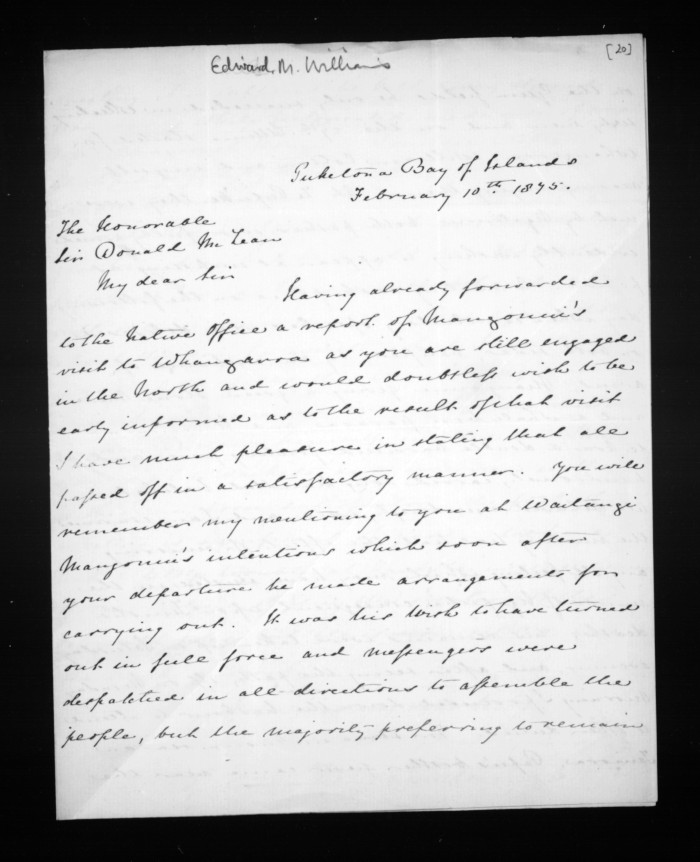 [20]
Edward. M. Williams
Puketona Bay of Islands
February 10th. 1875.
The Honorable
Sir Donald McLean
My dear Sir
Having already forwarded
to the Native Office a report of Mangonui's
visit to Whangaroa as you are still engaged
in the North and would doubtless wish to be
early informed as to the result of that visit
I have much pleasure in stating that all
passed off in a satisfactory manner. You will
remember my mentioning to you at Waitangi
Mangonui's intentions which soon after
your departure he made arrangements for
carrying out. It was his wish to have turned
out in full force and messengers were
despatched in all directions to assemble the
people, but the majority preferring to remain